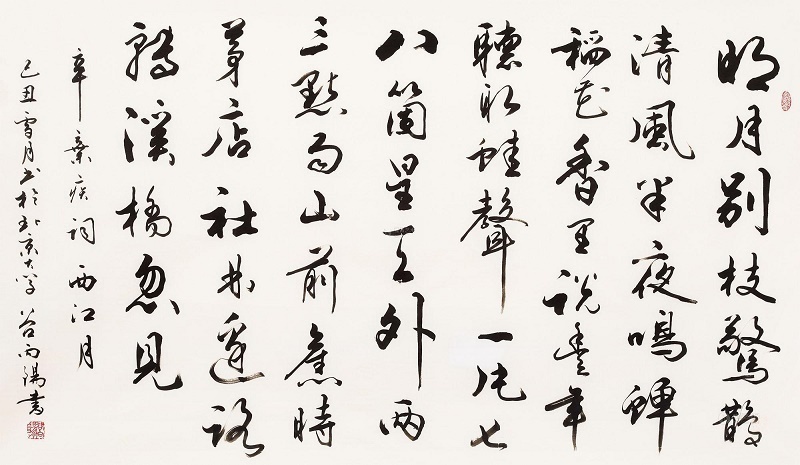 明月别枝驚鵲
清風半夜鳴蟬
稻花香里説豊年
聽取蛙聲一片七
八箇星天外兩
三點雨山前舊時
茅店社林邊路
轉溪橋忽見
辛棄疾詞西江月
己丑雪月書於北京大學谷雨陽書